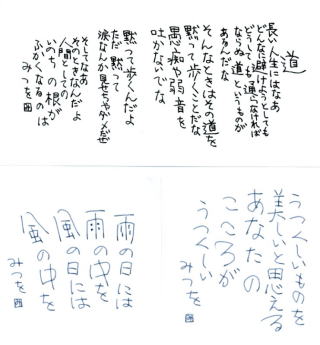 道
長い人生にはなあ
どんなに避けようとしても
どうしても通らなければ
ならぬ道というものが
あるんだな
そんなときはその道を
黙って歩くことだな
愚痴や弱音を
吐かないでな
黙って歩くんだよ
ただ黙って
涙なんか見せちゃダメだぜ
そしてなあ
そのときなんだよ
人間としての
いのちの根が
ふかくなるのは
みつを
うつくしいものを
美しいと思える
あなたの
こころが
うつくしい
みつを
雨の日には
雨の中を
風の日には
風の中を
みつを